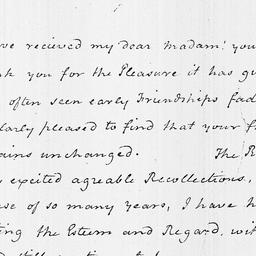 ve recieved my dear Madam! you
k you for the Pleasure it has gi
often seen early Friendships fad
larly pleased to find that your f
ains unchanged. The R
excited agreable Recollections,
se of so many years, I have h
ing the Esteem and Regard, wit